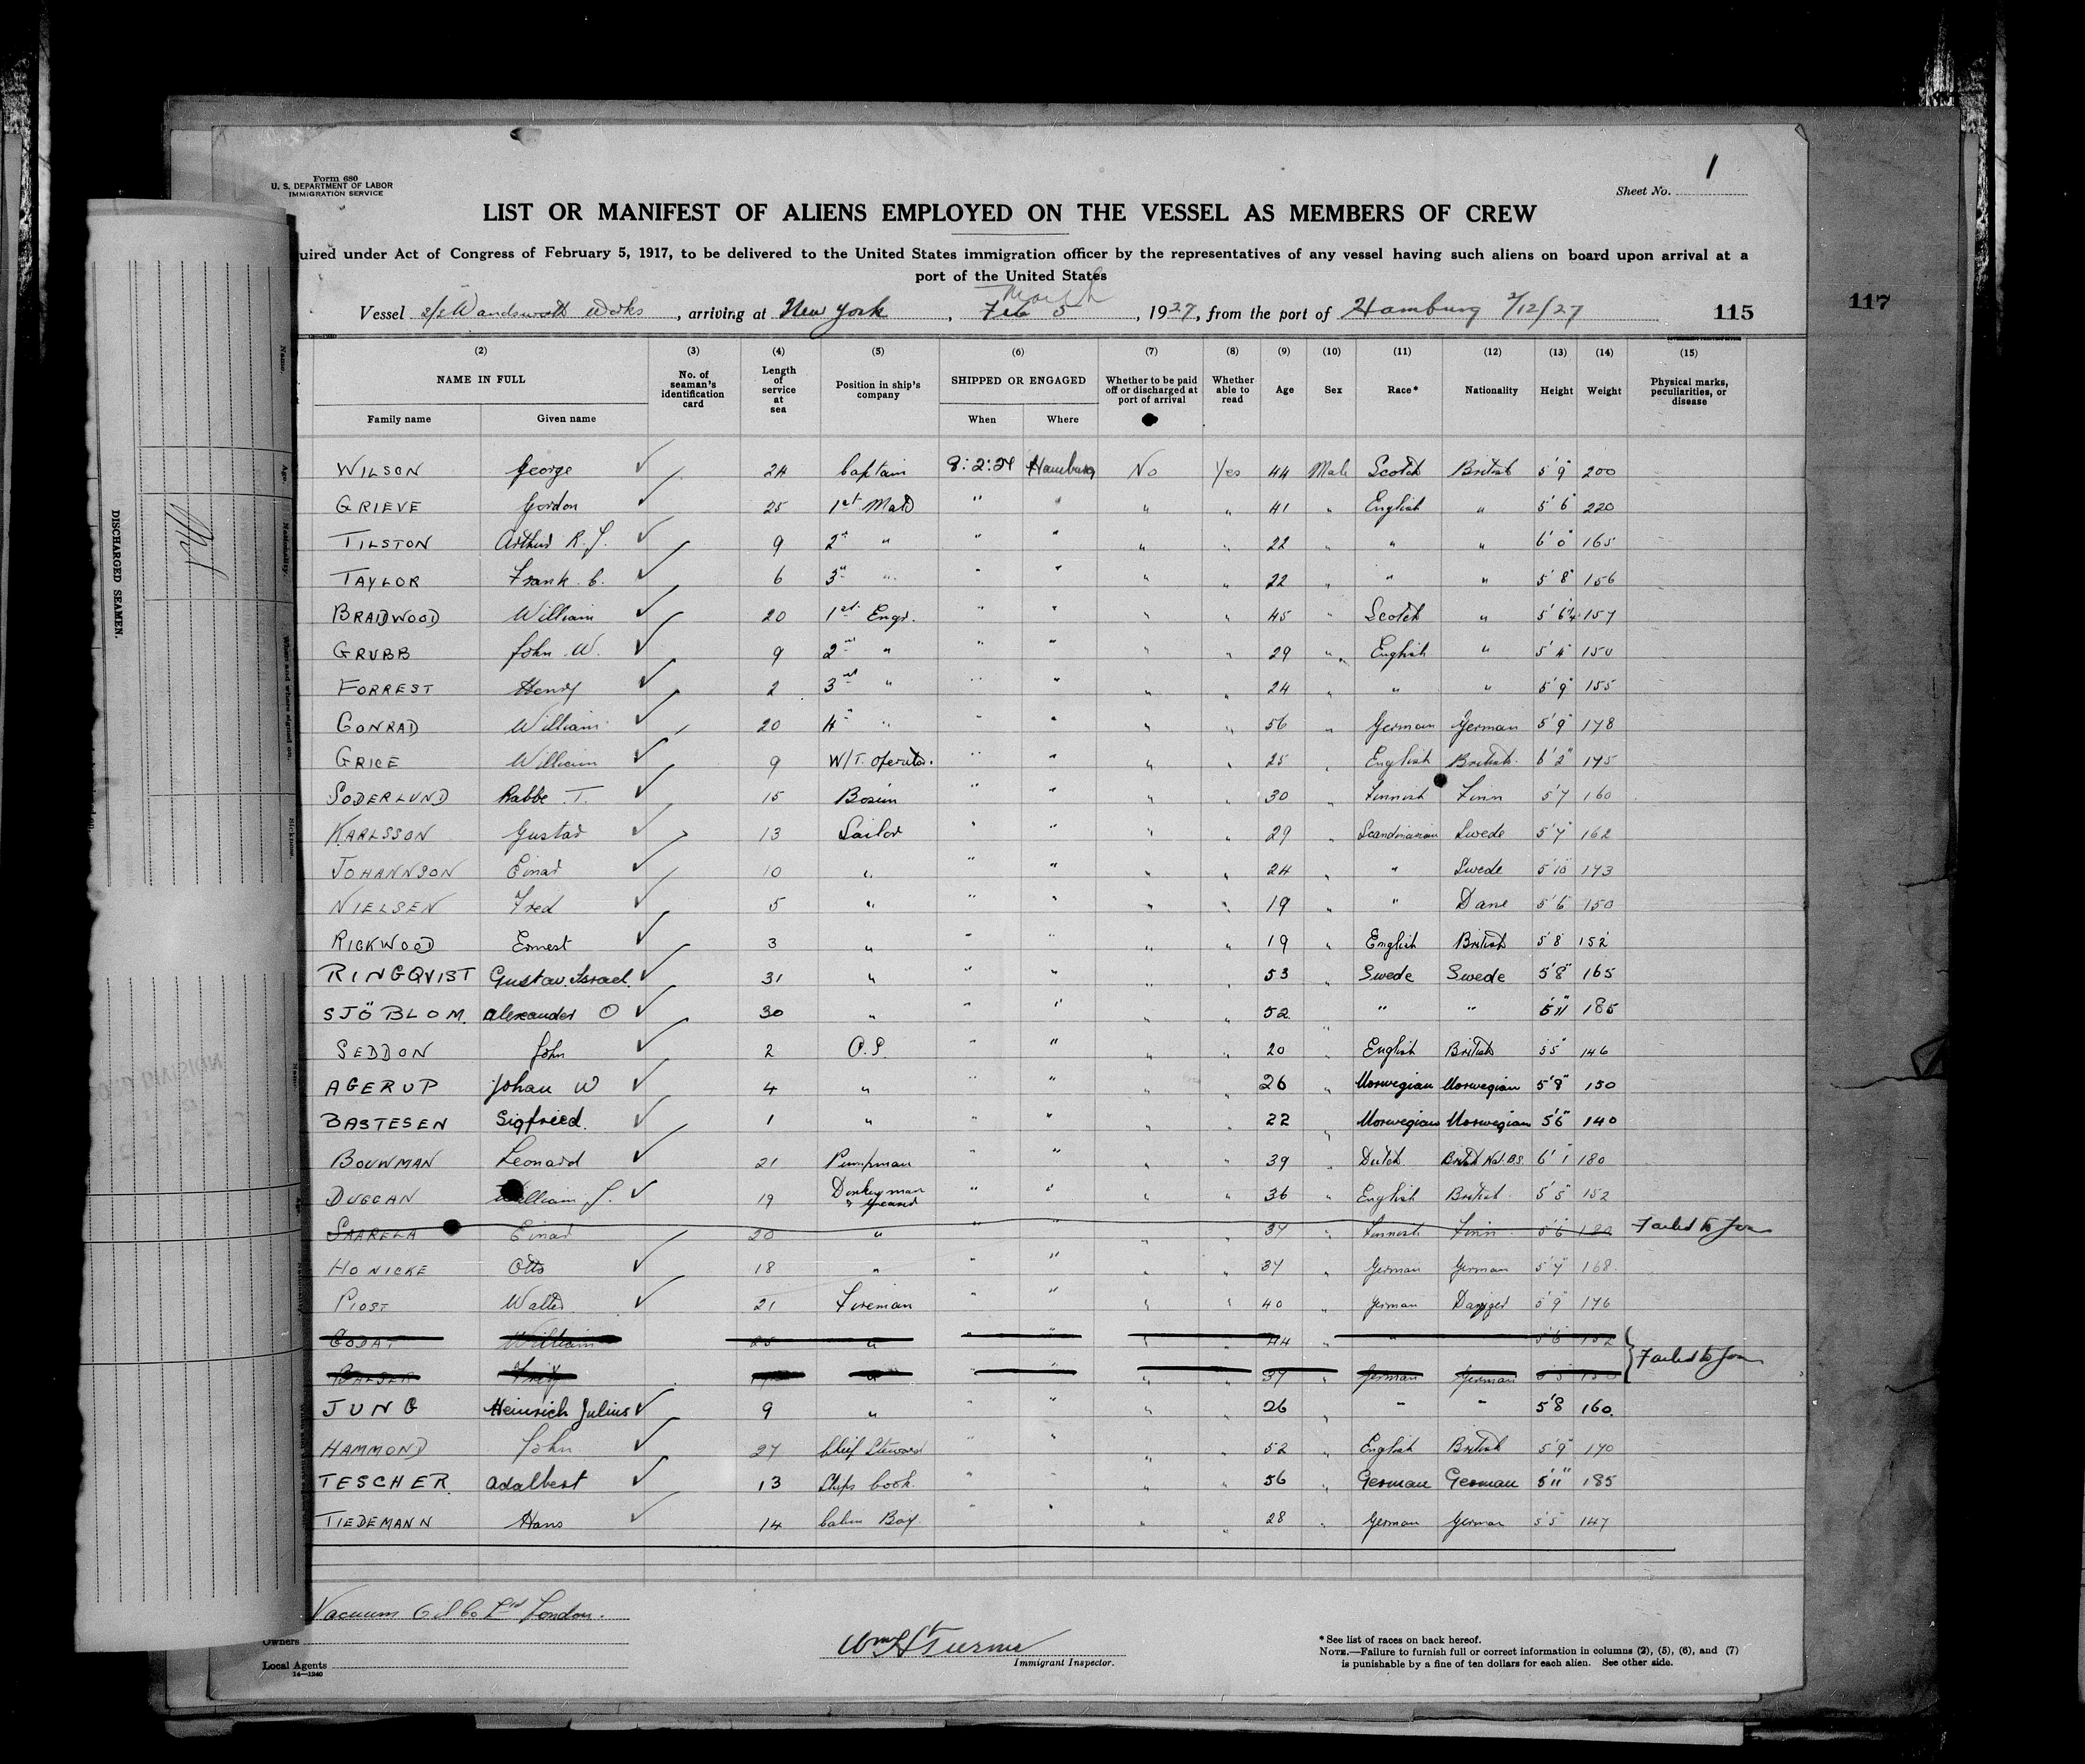 1
Form 680
U. S. DEPARTMENT OF LABOR
IMMIGRATION SERVICE
Sheet No.
LIST OR MANIFEST OF ALIENS EMPLOYED ON THE VESSEL AS MEMBERS OF CREW
uired under Act of Congress of February 5, 1917, to be delivered to the United States immigration officer by the representatives of any vessel having such aliens on board upon arrival at a
port of the United States
March
Vessel s/s Wandsworth Works, arriving at New York, Feb 5, 1927, from the port of Hamburg 2/12/27 115
117
(2) (3) (4) (5) (6) (7) (8) (9) (10) (11) (12) (13) (14) (15)
NAME IN FULL No. of seaman's identification card Length of service at sea Position in ship's company SHIPPED OR ENGAGED Whether to be paid off or discharged at port of arrival Whether able to read Age Sex Race* Nationality Height Weight Physical marks, peculiarities, or disease
Family name Given name When Where
WILSON George ✓ 24 Captain Hamburg No Yes 44 Male Scotch British 5' 9" 200
GRIEVE Gordon ✓ 25 1st Mate " " " " 41 " English " 5' 6" 220
TILSTON Arthur R. J. ✓ 9 2nd " " " " " 22 " " " 6' 0" 165
TAYLOR Frank C. ✓ 6 3rd " " " " " 22 " " " 5' 8" 156
BRAIDWOOD William ✓ 20 1st Engr. " " " " 45 " Scotch " 157
GRUBB John W. ✓ 9 2nd " " " " " 29 " English " 5' 4" 150
FORREST Henry ✓ 2 3rd " " " " " 24 " " " 5' 9" 155
CONRAD William ✓ 20 4th " " " " " 56 " German German 5' 9" 178
GRICE William ✓ 9 W/T. Operator. " " " " 25 " English British 6' 2" 175
SODERLUND Rabbe T. ✓ 15 Bosun " " " " 30 " Finnish Finn 5' 7 160
KARLSSON Gustav ✓ 13 Sailor " " " " 29 " Scandinavian Swede 5' 7" 162
JOHANNSON Einar ✓ 10 " " " " " 24 " " Swede 5' 10" 173
NIELSEN Fred ✓ 5 " " " " " 19 " " Dane 5' 6" 150
RICKWOOD Ernest ✓ 3 " " " " " 19 " English British 5' 8 152
RINGQVIST Gustav. Israel. ✓ 31 " " " " " 53 Swede Swede 5' 8" 165
SJÖBLOM. Alexander O ✓ 30 " " " " " 52 " " " 5' 11" 185
SEDDON John ✓ 2 O.S. " " " " 20 " English British 5' 5" 146
AGERUP Johan W ✓ 4 " " " " " 26 " Norwegian Norwegian 5' 8" 150
BASTESEN Sigfried. ✓ 1 " " " " " 22 " Norwegian Norwegian 5' 6" 140
BOUWMAN Leonard ✓ 21 Pumpman " " " " 39 " Dutch 6' 1 180
DUGGAN William J. ✓ 19 Donkeyman & Greaser " " " " 36 " English British 5' 5" 152
SAARELA Einar 20 " " " " " 37 " Finnish Finn 5' 6 180 Failed to Join
HONICKE Otto ✓ 18 " " " " " 37 " German German 5' 7" 168
PIOST Walter ✓ 21 Fireman " " " " 40 " German Danziger 5' 9" 176
GODAT William 25 " " " " " 44 " " 5' 6" 152
Fritz " " " " " 37 " German German Failed to Join
JUNG Heinrich Julius ✓ 9 " " " " " 26 " " " 5' 8 160.
HAMMOND John ✓ 27 Chief Steward " " " " 52 " English British 5' 9" 170
TESCHER Adalbert ✓ 13 Ships Cook. " " " " 56 " German German 5' 11" 185
TIEDEMANN Hans ✓ 14 Cabin Boy " " " " 28 " German German 5' 5" 147
Vacuum Oil Co Ltd London.
Owners
Local Agents
14—1240
Wm H Turner
Immigrant Inspector.
*See list of races on back hereof.
NOTE.—Failure to furnish full or correct information in columns (2), (5), (6), and (7)
is punishable by a fine of ten dollars for each alien. See other side.
DISCHARGED SEAMEN.
Name.
Age.
Nationality.
Where and where signed on.
Sickness.